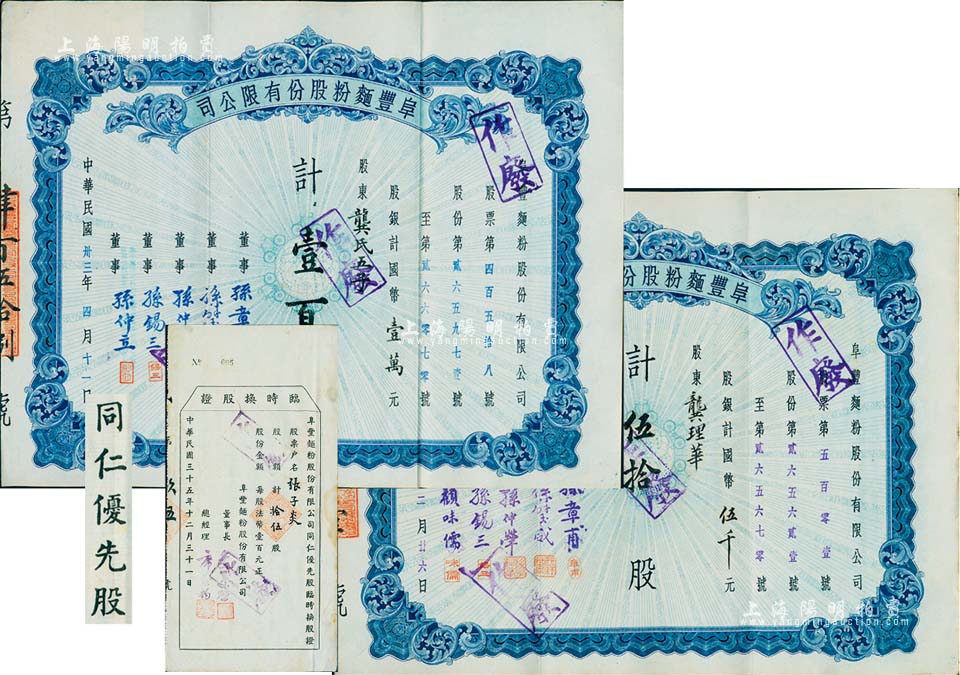 上海陽明拍賣
www.yangmingauction.com
阜豐麵粉股份有限公司
豐麵粉股份有限公司
股票第四百五拾八號
股份第貳六五九七壹號
至第貳六六零七零號
股銀計國幣壹萬元
股東龔氏五
計壹百
董事
董事 孫
董事 孫仲
董事 孫錫三
董事 孫仲立
中華民國卅三年四月十一日
第
肆百五拾捌
號
作廢
作廢
阜豐麵粉股份
阜豐麵粉股份有限公司
股票第五百零壹號
股份第貳六五六貳壹號
至第貳六五六七零號
股銀計國幣伍千元
股東龔理華
計伍拾股
孫章甫
孫仲犖
孫錫三
顧味儒
二月廿六日
號
作廢
上海陽明拍賣
www.yangmingauction.com
上海陽明拍賣
www.yangmingauction.com
No
臨時換股證
阜豐麵粉股份有限公司同仁優先股臨時換股證
股票戶名張子炎
股額計拾伍股
股份金額每股法幣壹百元正
阜豐麵粉股份有限公司
董事長
總經理
中華民國三十五年十二月三十一日
同仁優先股